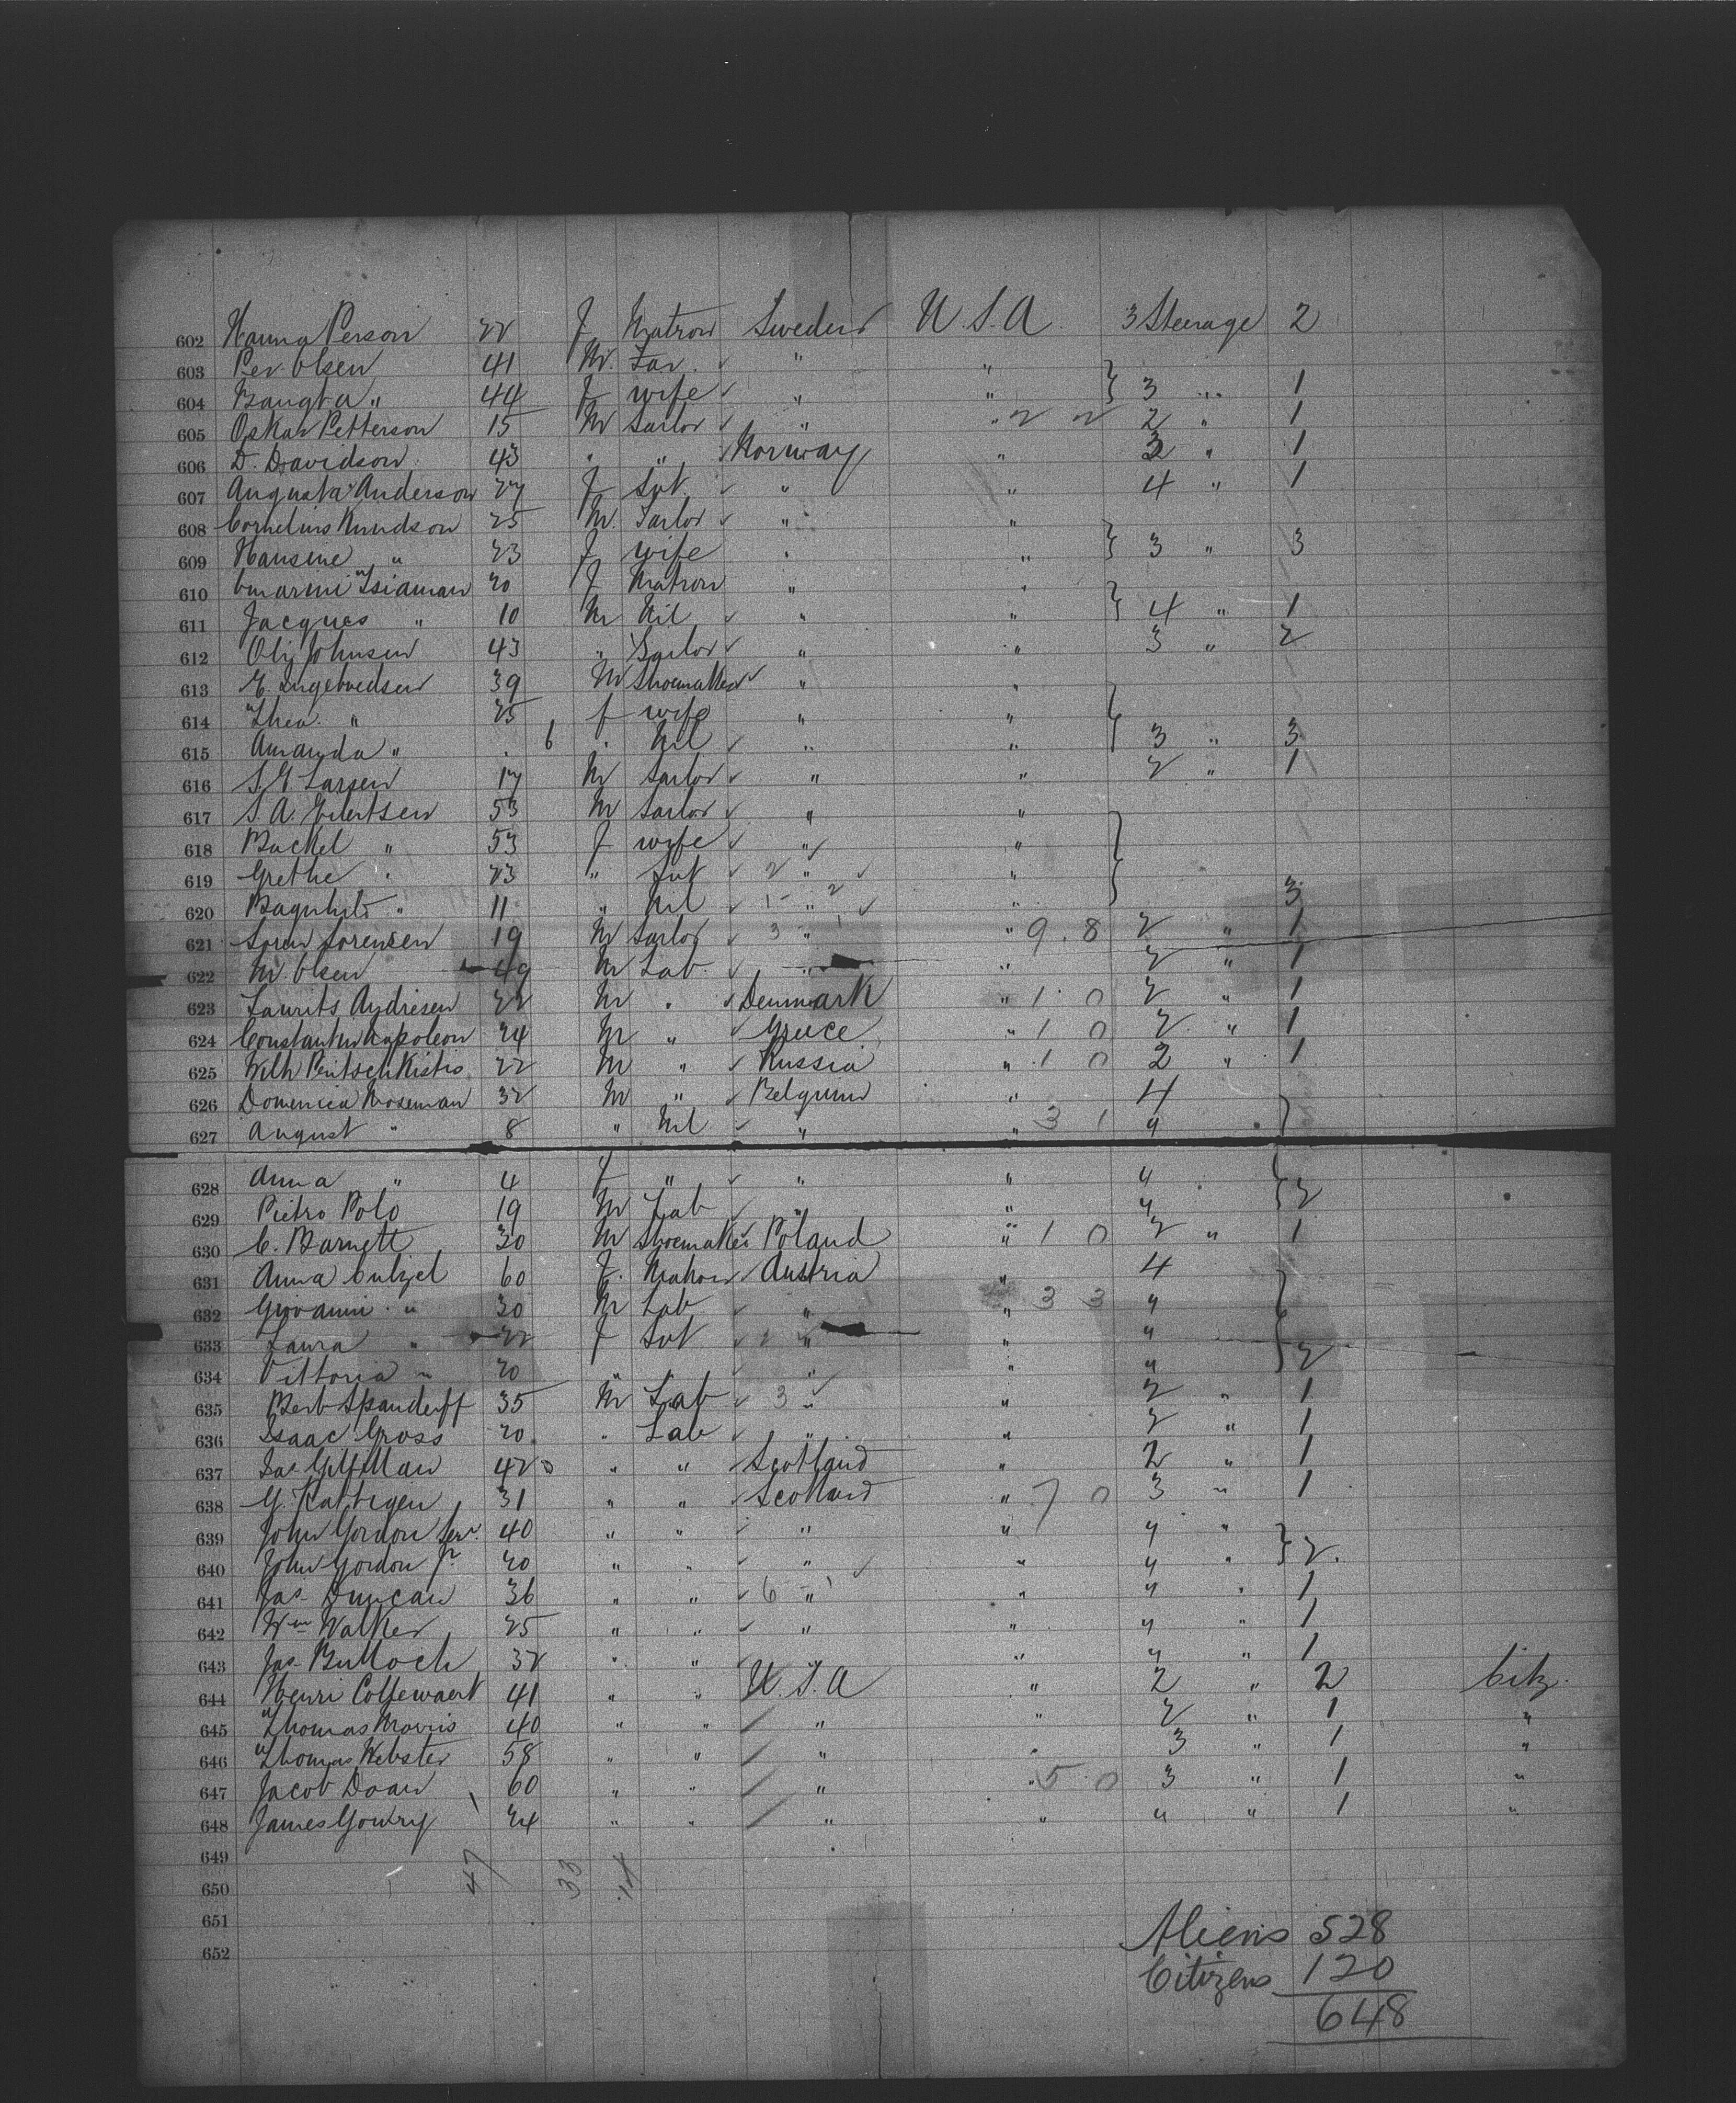 602 Hanna Person 22 f Matron Sweden U.S.A. 3 Steerage 2
603 Per Olsen 41 M. Far. " "
604 Bengta " 44 f wife " " } 3 " 1
605 Oskar Petterson 15 M Sailor " " 2 2 2 " 1
606 D. Davidson 43 " " Norway " 3 " 1
607 Augusta Anderson 27 f Svt. " " 4 " 1
608 Cornelius Knudson 25 M. Sailor " "
609 Hansine " 23 f wife " " } 3 " 3
610 20 f Matron " "
611 Jacques " 10 M Nil " " } 4 " 1
612 Ole Johnsen 43 " Sailor " " 3 " 2
613 E. Ingebredsen 39 M Shoemaker " "
614 Thea " 25 f wife " "
615 Amanda " 6 " Nil " " } 3 " 3
616 S. E. Larsen 17 M Sailor " " 2 " 1
617 S. A. Evertsen 53 M Sailor " "
618 " 53 f wife " "
619 Grethe " 23 " Svt 2 " " }
620 " 11 " Nil " " 3
621 Soren Sorensen 19 M Sailor 3 " " 9 . 8 2 " 1
622 M. Olsen 49 M Lab. " " 2 " 1
623 Laurits Andresen 22 M " Denmark " 1 0 2 " 1
624 Constantin Napoleon 24 M " Greece " 1 0 2 " 1
625 Wilh 22 M " Russia " 1 0 2 " 1
626 Domenica Moseman 32 M " Belgium " 4
627 August " 8 " Nil " " 3 1 "
628 Anna " 4 f " " " " } 2
629 Pietro Polo 19 M Lab " " "
630 C. Barnett 30 M Shoemaker Poland " 1 0 2 " 1
631 Anna 60 f. Matron Austria " 4
632 Giovanni " 30 M Lab " " 3 3 "
633 Laura " 22 f Svt " " "
634 Vittoria " 20 " " " " " } 2
635 Berb 35 M Lab 3 " " 2 " 1
636 Isaac Gross 20 " Lab " " 2 " 1
637 Jas. 42 " " Scotland " 2 " 1
638 G. 31 " " Scotland " 7 0 3 " 1
639 John Gordon Senr. 40 " " " " " "
640 John Gordon Jr 20 " " " " " " } 2.
641 Jas. Duncan 36 " " 6 " " " " 1
642 Wm Walker 25 " " " " " " 1
643 Jas. Bulloch 32 " " " " " " 1
644 Henri 41 " " U.S.A " 2 " 2 Citz.
645 Thomas Morris 40 " " " " 2 " 1 "
646 Thomas Webster 58 " " " " 3 " 1 "
647 Jacob Doan 60 " " " " 5 0 3 " 1 "
648 James Gowry 24 " " " " " " 1 "
649
650 47 33 14
651
652
Aliens 528
Citizens 120
648